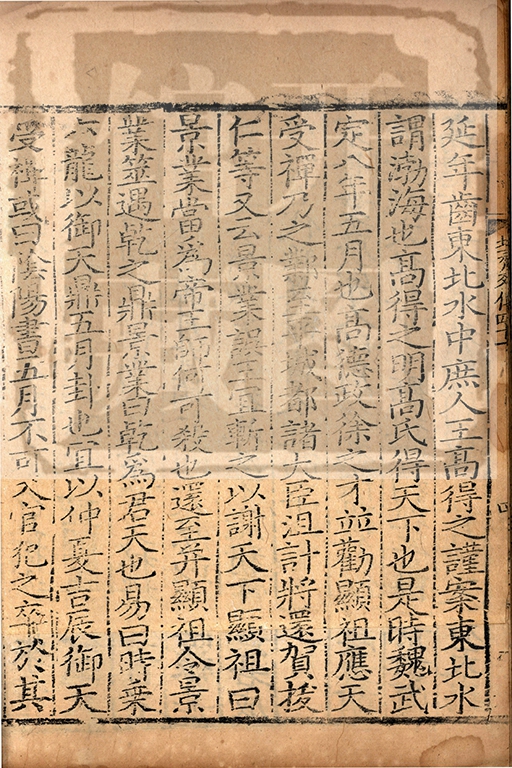 延年齒東北水中庶人王高得之謹案東北水
謂渤海也高得之明高氏得天下也是時魏武
定八年五月也高德政徐之才並勸顯祖應天
受禪乃之鄴至平城都諸大臣沮計將還賀拔
仁等又云景業誤王宜斬之以謝天下顯祖曰
景業當爲帝王師何可殺也還至并顯祖令景
業筮遇乾之鼎景業曰乾爲君天也易曰時乗
六龍以御天鼎五月卦也宜以仲夏吉辰御天
受禪或曰陰陽書五月不可入官犯之卒於其